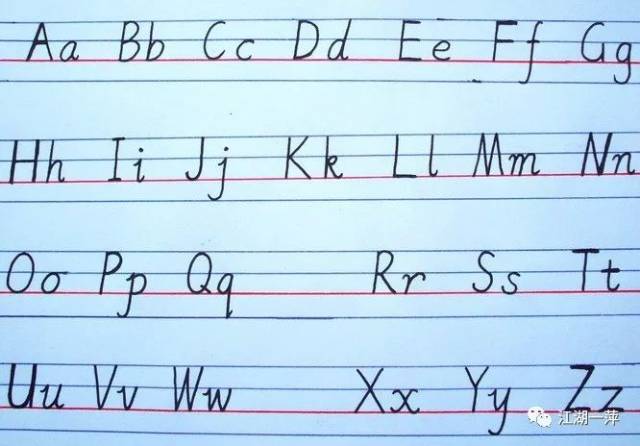 Aa Bb Cc Dd Ee Ff Gg
Hh Ii Jj Kk Ll Mm Nn
Oo Pp Qq Rr Ss Tt
Uu Vv Ww Xx Yy Zz
江湖一萍